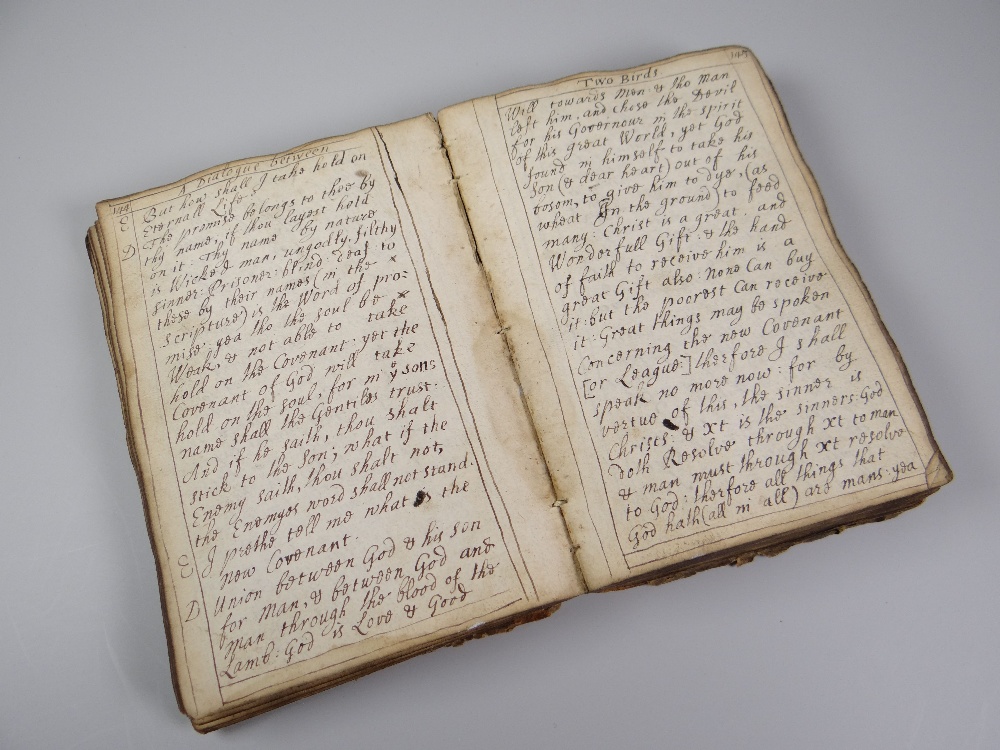 A Dialogue between
144
E But how shall I take hold on
Eternall Life.
D The promise belongs to thee by
thy name, if thou layest hold
on it: Thy name by nature
is Wicked man, ungodly, filthy
sinner: Prisoner: blind deaf to
these by their names (in the x
scripture) is the Word of pro=
mise: yea tho the soul be x
Weak, & not able to take
hold on the Covenant: yet the
Covenant of God will take
hold on the soul, for in ye sons
name shall the Gentiles trust.
And if he saith, thou shalt
stick to the Son, what if the
Enemy saith, thou shalt not,
the Enemyes word shall not stand.
E I prethe tell me what is the
new Covenant.
D Union between God & his son
for Man, & between God and
man through the blood of the
Lamb: God is Love & Good
Two Birds. 145
Will towards Men: & tho Man
left him, and chose the Devil
for his Governour in the spirit
of this great World, yet God
found in himself to take his
Son (& dear heart) out of his
bosom, to give him to dye, (as
wheat in the ground) to feed
many: Christ is a great and
Wonderfull Gift: & the hand
of faith to receive him is a
great Gift also: None Can buy
it: but the poorest Can receive
it: Great things may be spoken
Concerning the new Covenant
[or League:] therfore I shall
speak no more now: for by
vertue of this, the sinner is
Christs: & xt is the sinners: God
doth Resolve through xt to man
& man must through xt resolve
to God: therfore all things that
God hath (all in all) are mans: yea